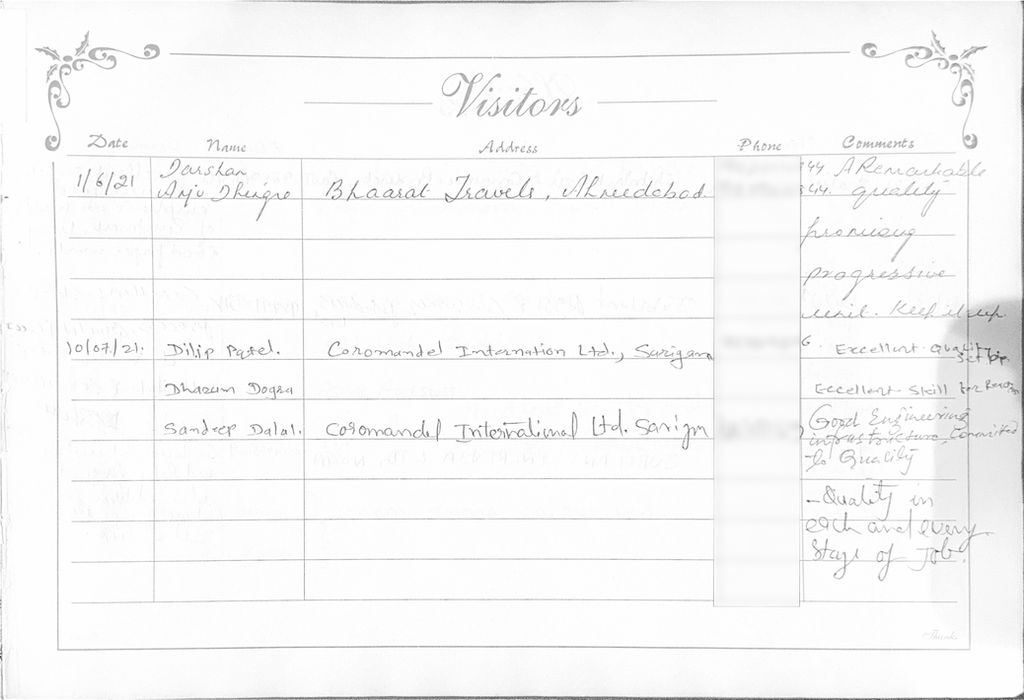 Visitors
Date Name Address Phone Comments
Darshan 44. A Remarkable
1/6/21 Anju Dhingra Bhaarat Travels, Ahmedabad. 44. quality
promising
progressive
unit. Keep it up.
10/07/21. Dilip Patel. Coromandel Internation Ltd., Sarigam 6. Excellent Quality
Set up.
Dharam Dogra Excellent Skill for
Sandeep Dalal. Coromandel International Ltd. Sarigm Good Engineering
infrastructure, Committed
to Quality
- Quality in
each and every
stage of Job.
Thanks